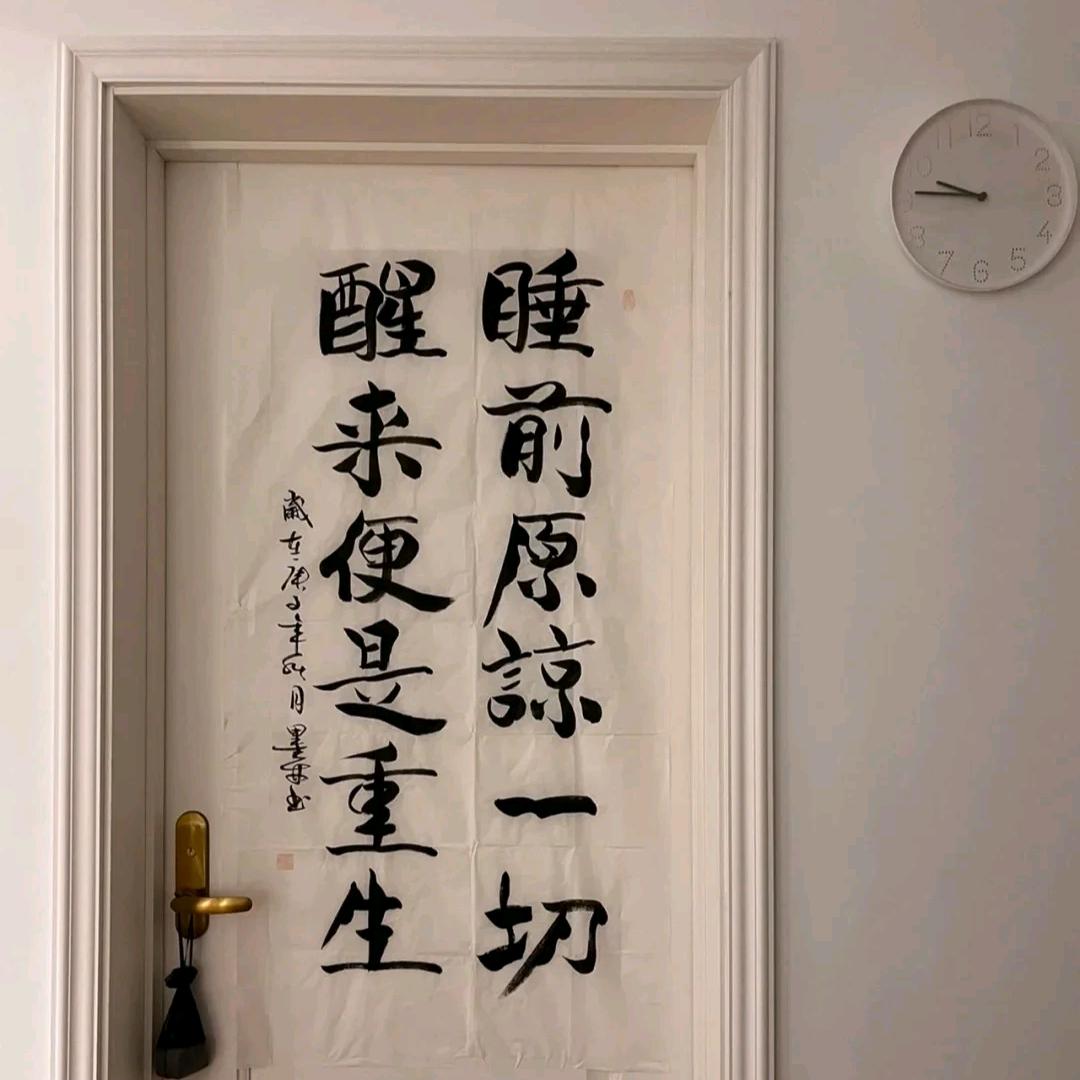 睡前原諒一切
醒来便是重生
歲在庚子年
月墨
12
1
2
3
4
5
6
7
8
9
10
11